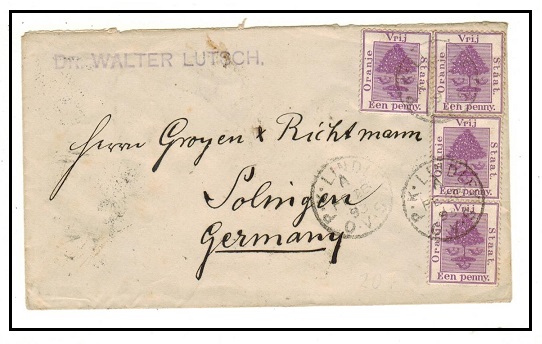 DR. WALTER LUTSCH.
Vrij
Oranje Staat.
Een penny.
Vrij
Oranje Staat.
Een penny.
Vrij
Oranje Staat.
Een penny.
Vrij
Oranje Staat.
Een penny.
Herrn Groyen & Richtmann
Solingen
Germany
P.K. LINDL
P.K. LIND